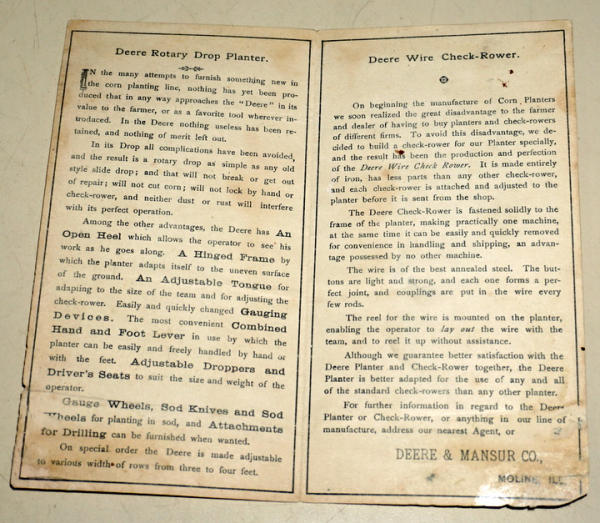 Deere Rotary Drop Planter.
IN the many attempts to furnish something new in
the corn planting line, nothing has yet been pro-
duced that in any way approaches the "Deere" in its
value to the farmer, or as a favorite tool wherever in-
troduced. In the Deere nothing useless has been re-
tained, and nothing of merit left out.
In its Drop all complications have been avoided,
and the result is a rotary drop as simple as any old
style slide drop; and that will not break or get out
of repair; will not cut corn; will not lock by hand or
check-rower, and neither dust or rust will interfere
with its perfect operation.
Among the other advantages, the Deere has An
Open Heel which allows the operator to see his
work as he goes along. A Hinged Frame by
which the planter adapts itself to the uneven surface
of the ground. An Adjustable Tongue for
adapting to the size of the team and for adjusting the
check-rower. Easily and quickly changed Gauging
Devices. The most convenient Combined
Hand and Foot Lever in use by which the
planter can be easily and freely handled by hand or
with the feet. Adjustable Droppers and
Driver's Seats to suit the size and weight of the
operator.
Gauge Wheels, Sod Knives and Sod
Wheels for planting in sod, and Attachments
for Drilling can be furnished when wanted.
On special order the Deere is made adjustable
to various width of rows from three to four feet.
Deere Wire Check-Rower.
On beginning the manufacture of Corn Planters
we soon realized the great disadvantage to the farmer
and dealer of having to buy planters and check-rowers
of different firms. To avoid this disadvantage, we de-
cided to build a check-rower for our Planter specially,
and the result has been the production and perfection
of the Deere Wire Check Rower. It is made entirely
of iron, has less parts than any other check-rower,
and each check-rower is attached and adjusted to the
planter before it is sent from the shop.
The Deere Check-Rower is fastened solidly to the
frame of the planter, making practically one machine,
at the same time it can be easily and quickly removed
for convenience in handling and shipping, an advan-
tage possessed by no other machine.
The wire is of the best annealed steel. The but-
tons are light and strong, and each one forms a per-
fect joint, and couplings are put in the wire every
few rods.
The reel for the wire is mounted on the planter,
enabling the operator to lay out the wire with the
team, and to reel it up without assistance.
Although we guarantee better satisfaction with the
Deere Planter and Check-Rower together, the Deere
Planter is better adapted for the use of any and all
of the standard check-rowers than any other planter.
For further information in regard to the Deere
Planter or Check-Rower, or anything in our line of
manufacture, address our nearest Agent, or
DEERE & MANSUR CO.,
MOLINE, ILL.